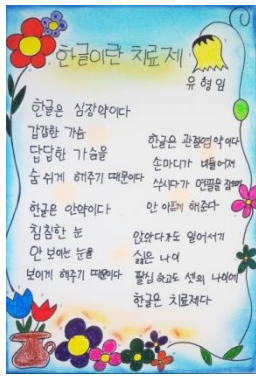 한글이란 치료제
유형임
한글은 심장약이다
갑갑한 가슴
답답한 가슴을
숨쉬게 해주기 때문이다
한글은 안약이다
침침한 눈
안 보이는 눈을
보이게 해주기 때문이다
한글은 관절염약이다
손마디가
쑤시다가 연필을 잡으면
안 아프게 해준다
앉았다가도 일어서기
싫은 나이
팔십 하고도 셋의 나이에
한글은 치료제다